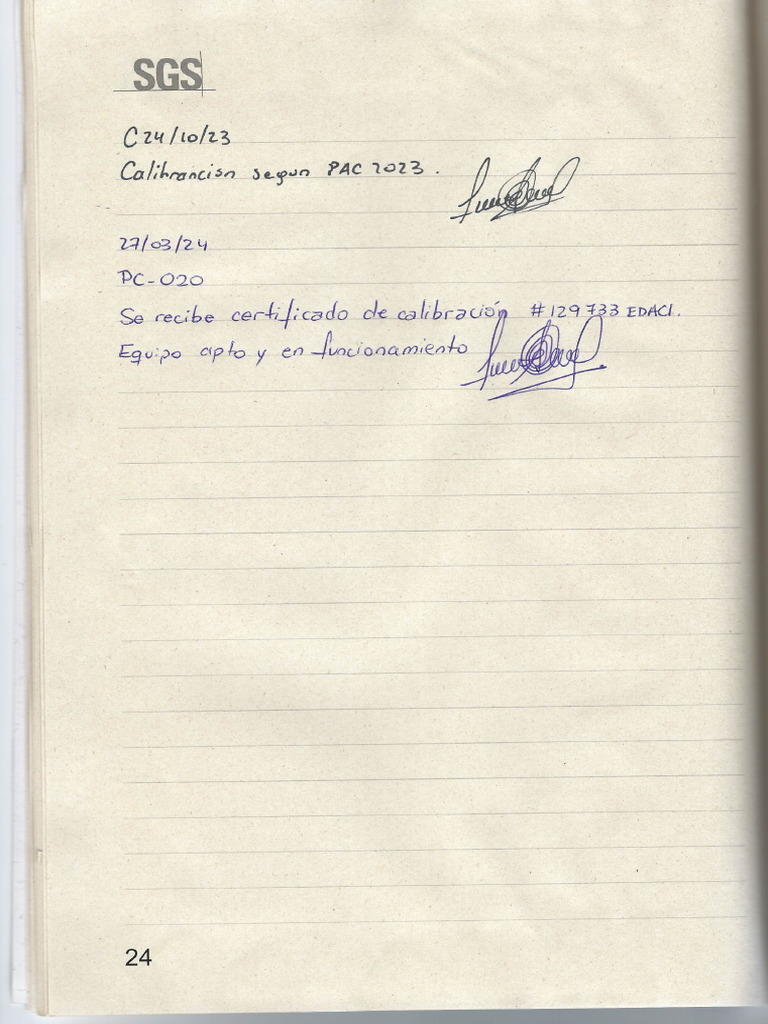 SGS
C 24/10/23
Calibrancion segun PAC 2023.
27/03/24
PC-020
Se recibe certificado de calibración #129733 EDACI.
Equipo apto y en funcionamiento
24